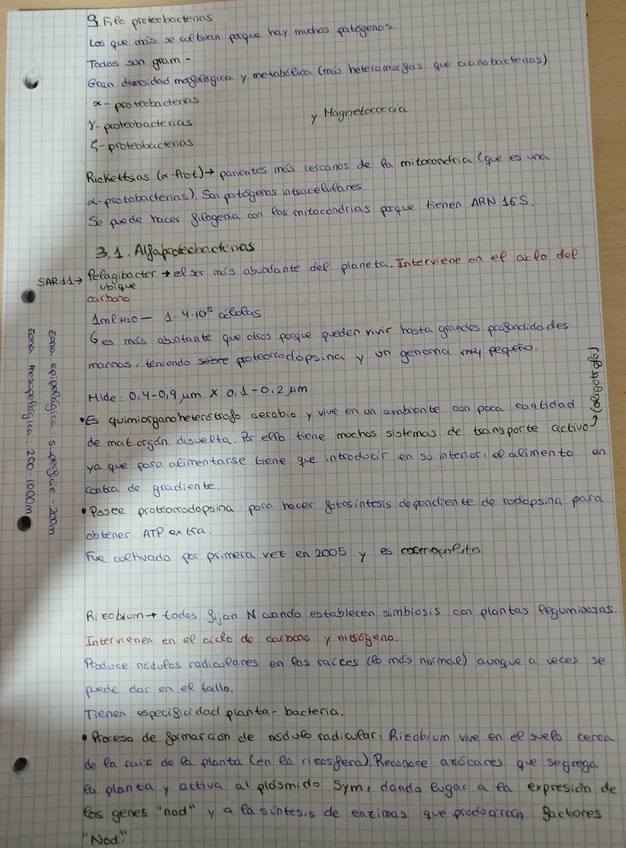 3. Filo proteobacterias
Los que más se cultivan porque hay muchos patógenos.
Todos son gram -
Gran diversidad morfológica y metabólica (más heteromorfas que cianobacterias)
α- proteobacterias
γ- proteobacterias
y Magnetococcia
ζ- proteobacterias
Rickettsias (α-Prot) → parientes más cercanos de la mitocondria (que es una
α-protobacterias). Son patógenos intracelulares
Se puede hacer filogenia con las mitocondrias porque tienen ARN 16S.
3.1. Alfaproteobacterias
SAR11 → Pelagibacter → el ser más abundante del planeta. Interviene en el ciclo del
ubique
carbono
1ml H2O — 1-4·10⁵ células
↳ es más abuntante que otros porque pueden vivir hasta grandes profundidades
marinas, teniendo sobre proteorrodopsina y un genoma muy pequeño.
Mide: 0,4-0,9 µm x 0,1-0,2 µm
• Es quimiorganoheterótrofo aerobio y vive en un ambiente con poca cantidad
de mat.orgán disuelta. Por ello tiene muchos sistemas de transporte activo
(oligotrofo)
ya que para alimentarse tiene que introducir en su interior, el alimento en
contra de gradiente.
• Posee proteorrodopsina para hacer fotosíntesis dependiente de rodopsina para
obtener ATP extra.
Fue cultivado por primera vez en 2005 y es cosmopolita
zona epipelágica: superficie-200m
zona mesopelágica: 200-1000m
Rizobium → todos fijan N cuando establecen simbiosis con plantas leguminosas.
Intervienen en el ciclo de carbono y nitrógeno.
Produce nódulos radiculares en las raíces (lo más normal) aunque a veces se
puede dar en el tallo.
Tienen especificidad planta-bacteria.
• Proceso de formación de nódulo radicular: Rizobium vive en el suelo cerca
de la raíz de la planta (en la rizosfera). Reconoce azúcares que segrega
la planta y activa al plásmido Sym, dando lugar a la expresión de
los genes "nod" y a la síntesis de enzimas que producirán factores
"Nod".